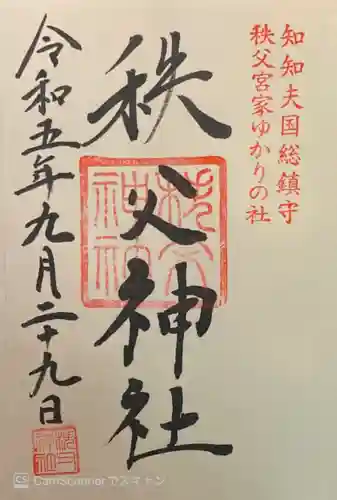 知知夫国総鎮守
秩父宮家ゆかりの社
秩父神社
令和五年九月二十九日
CS CamScannerでスキャン